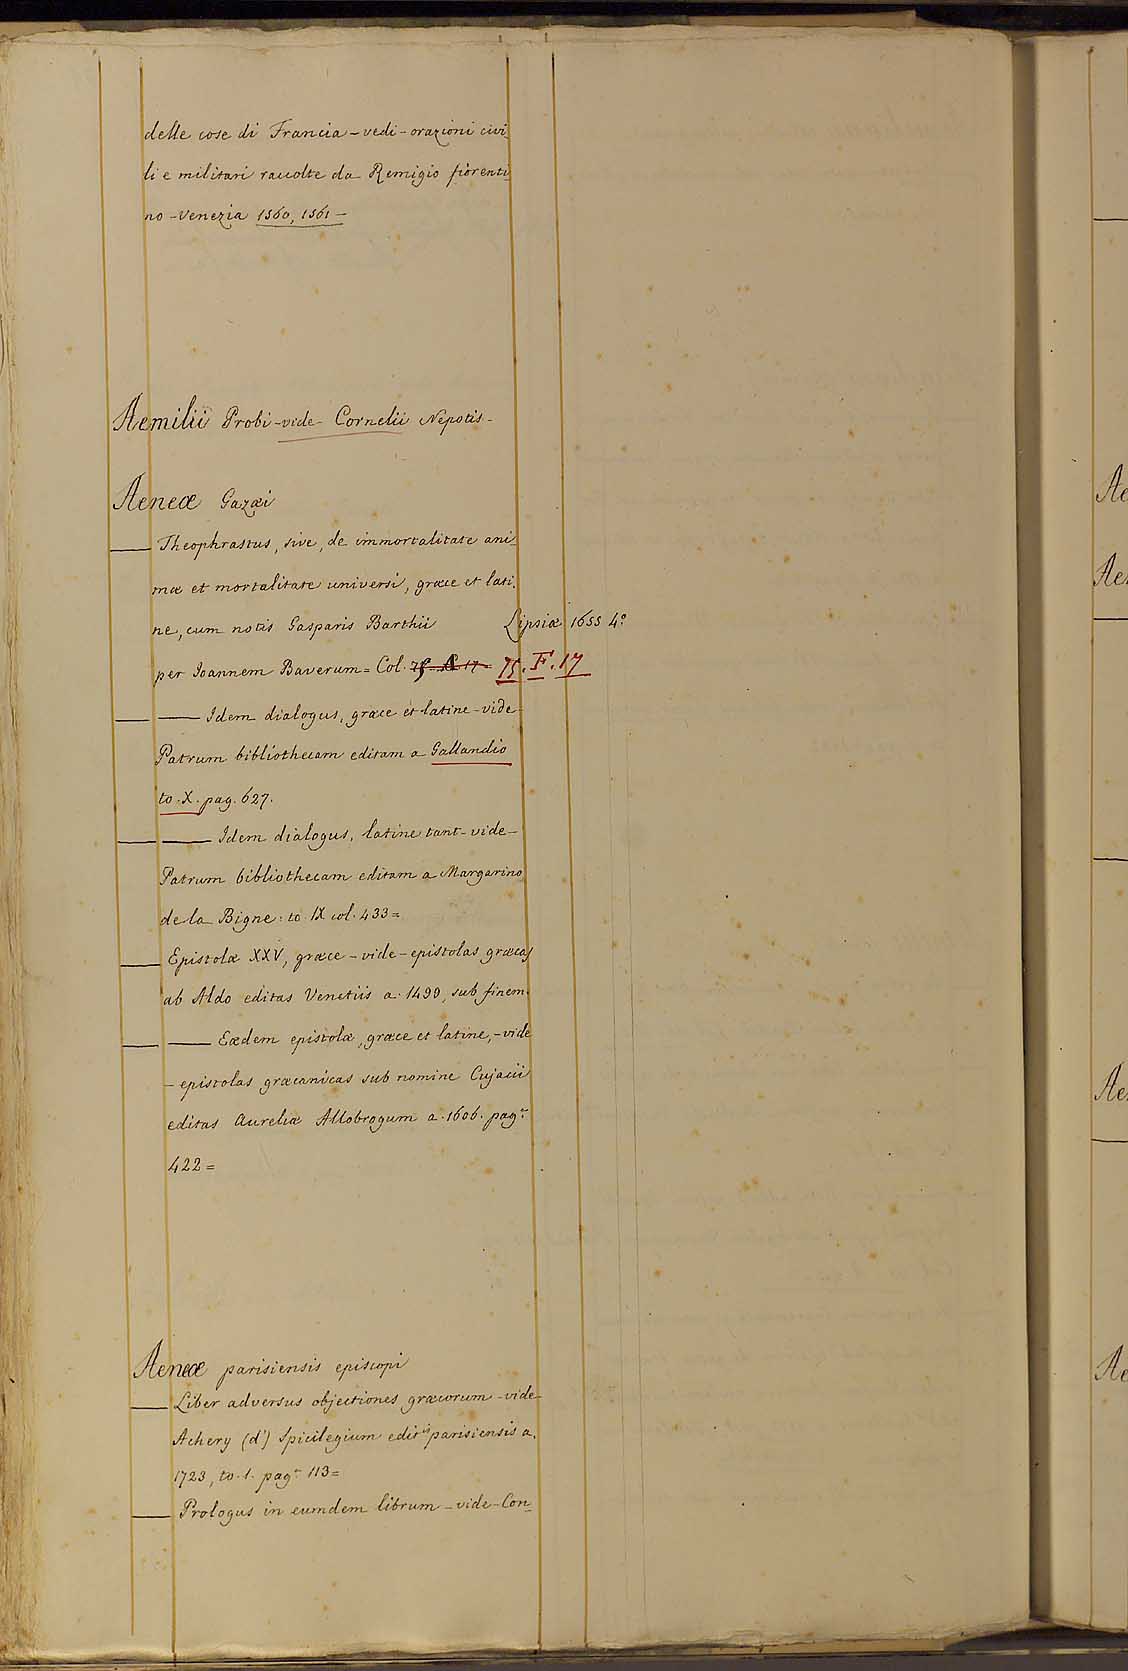 delle cose di Francia - vedi - orazioni civi_
li e militari raccolte da Remigio fiorenti_
no - Venezia 1560, 1561 -
Aemilii Probi - vide - Cornelii Nepotis -
Aeneæ Gazæi
Theophrastus, sive, de immortalitate ani_
mæ et mortalitate universi, græce et lati_
ne, cum notis Gasparis Barthii Lipsiæ 1655 4º
per Ioannem Baverum = Col. 75. F. 17
Idem dialogus, græce et latine - vide
Patrum bibliothecam editam a Gallandio
to. X. pag. 627.
Idem dialogus, latine tant - vide -
Patrum bibliothecam editam a Margarino
de la Bigne: to. IX col. 433 =
Epistolæ XXV, græce - vide - epistolas græcas
ab Aldo editas Venetiis a. 1499, sub finem.
Eædem epistolæ, græce et latine, - vide
- epistolas græcanicas sub nomine Cujacii
editas Aureliæ Allobrogum a. 1606. pagr
422 =
Aeneæ parisiensis episcopi
Liber adversus objectiones græcorum - vide -
Achery (d') Spicilegium editis parisiensis a.
1723, to. 1. pagr 113 =
Prologus in eumdem librum - vide - Con_
Ae
Ae
Ae
Ae